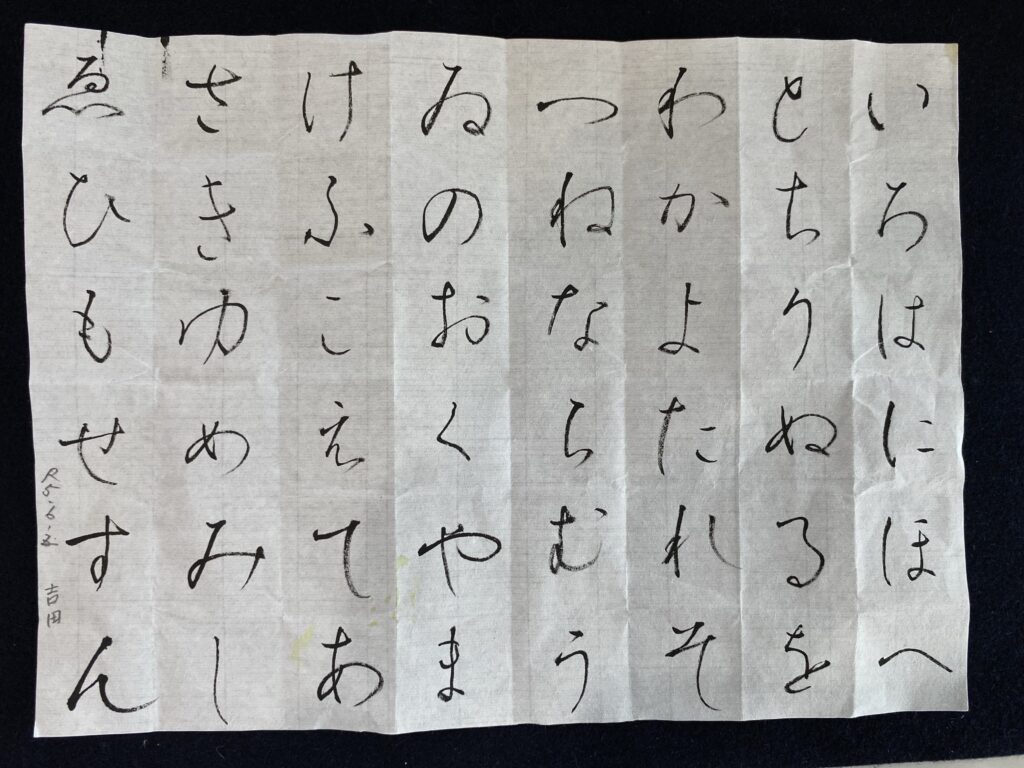 いろはにほへ
とちりぬるを
わかよたれそ
つねならむう
ゐのおくやま
けふこえてあ
さきゆめみし
ゑひもせすん
吉田